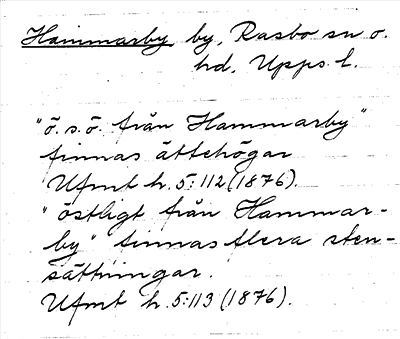 Hammarby by, Rasbo sn o.
hd, Upps. l.
"ö. s. ö. från Hammarby"
finnas ättehögar
Ufmt h. 5:112 (1876).
"östligt från Hammar-
by" finnas flera sten-
sättningar.
Ufmt h. 5:113 (1876).